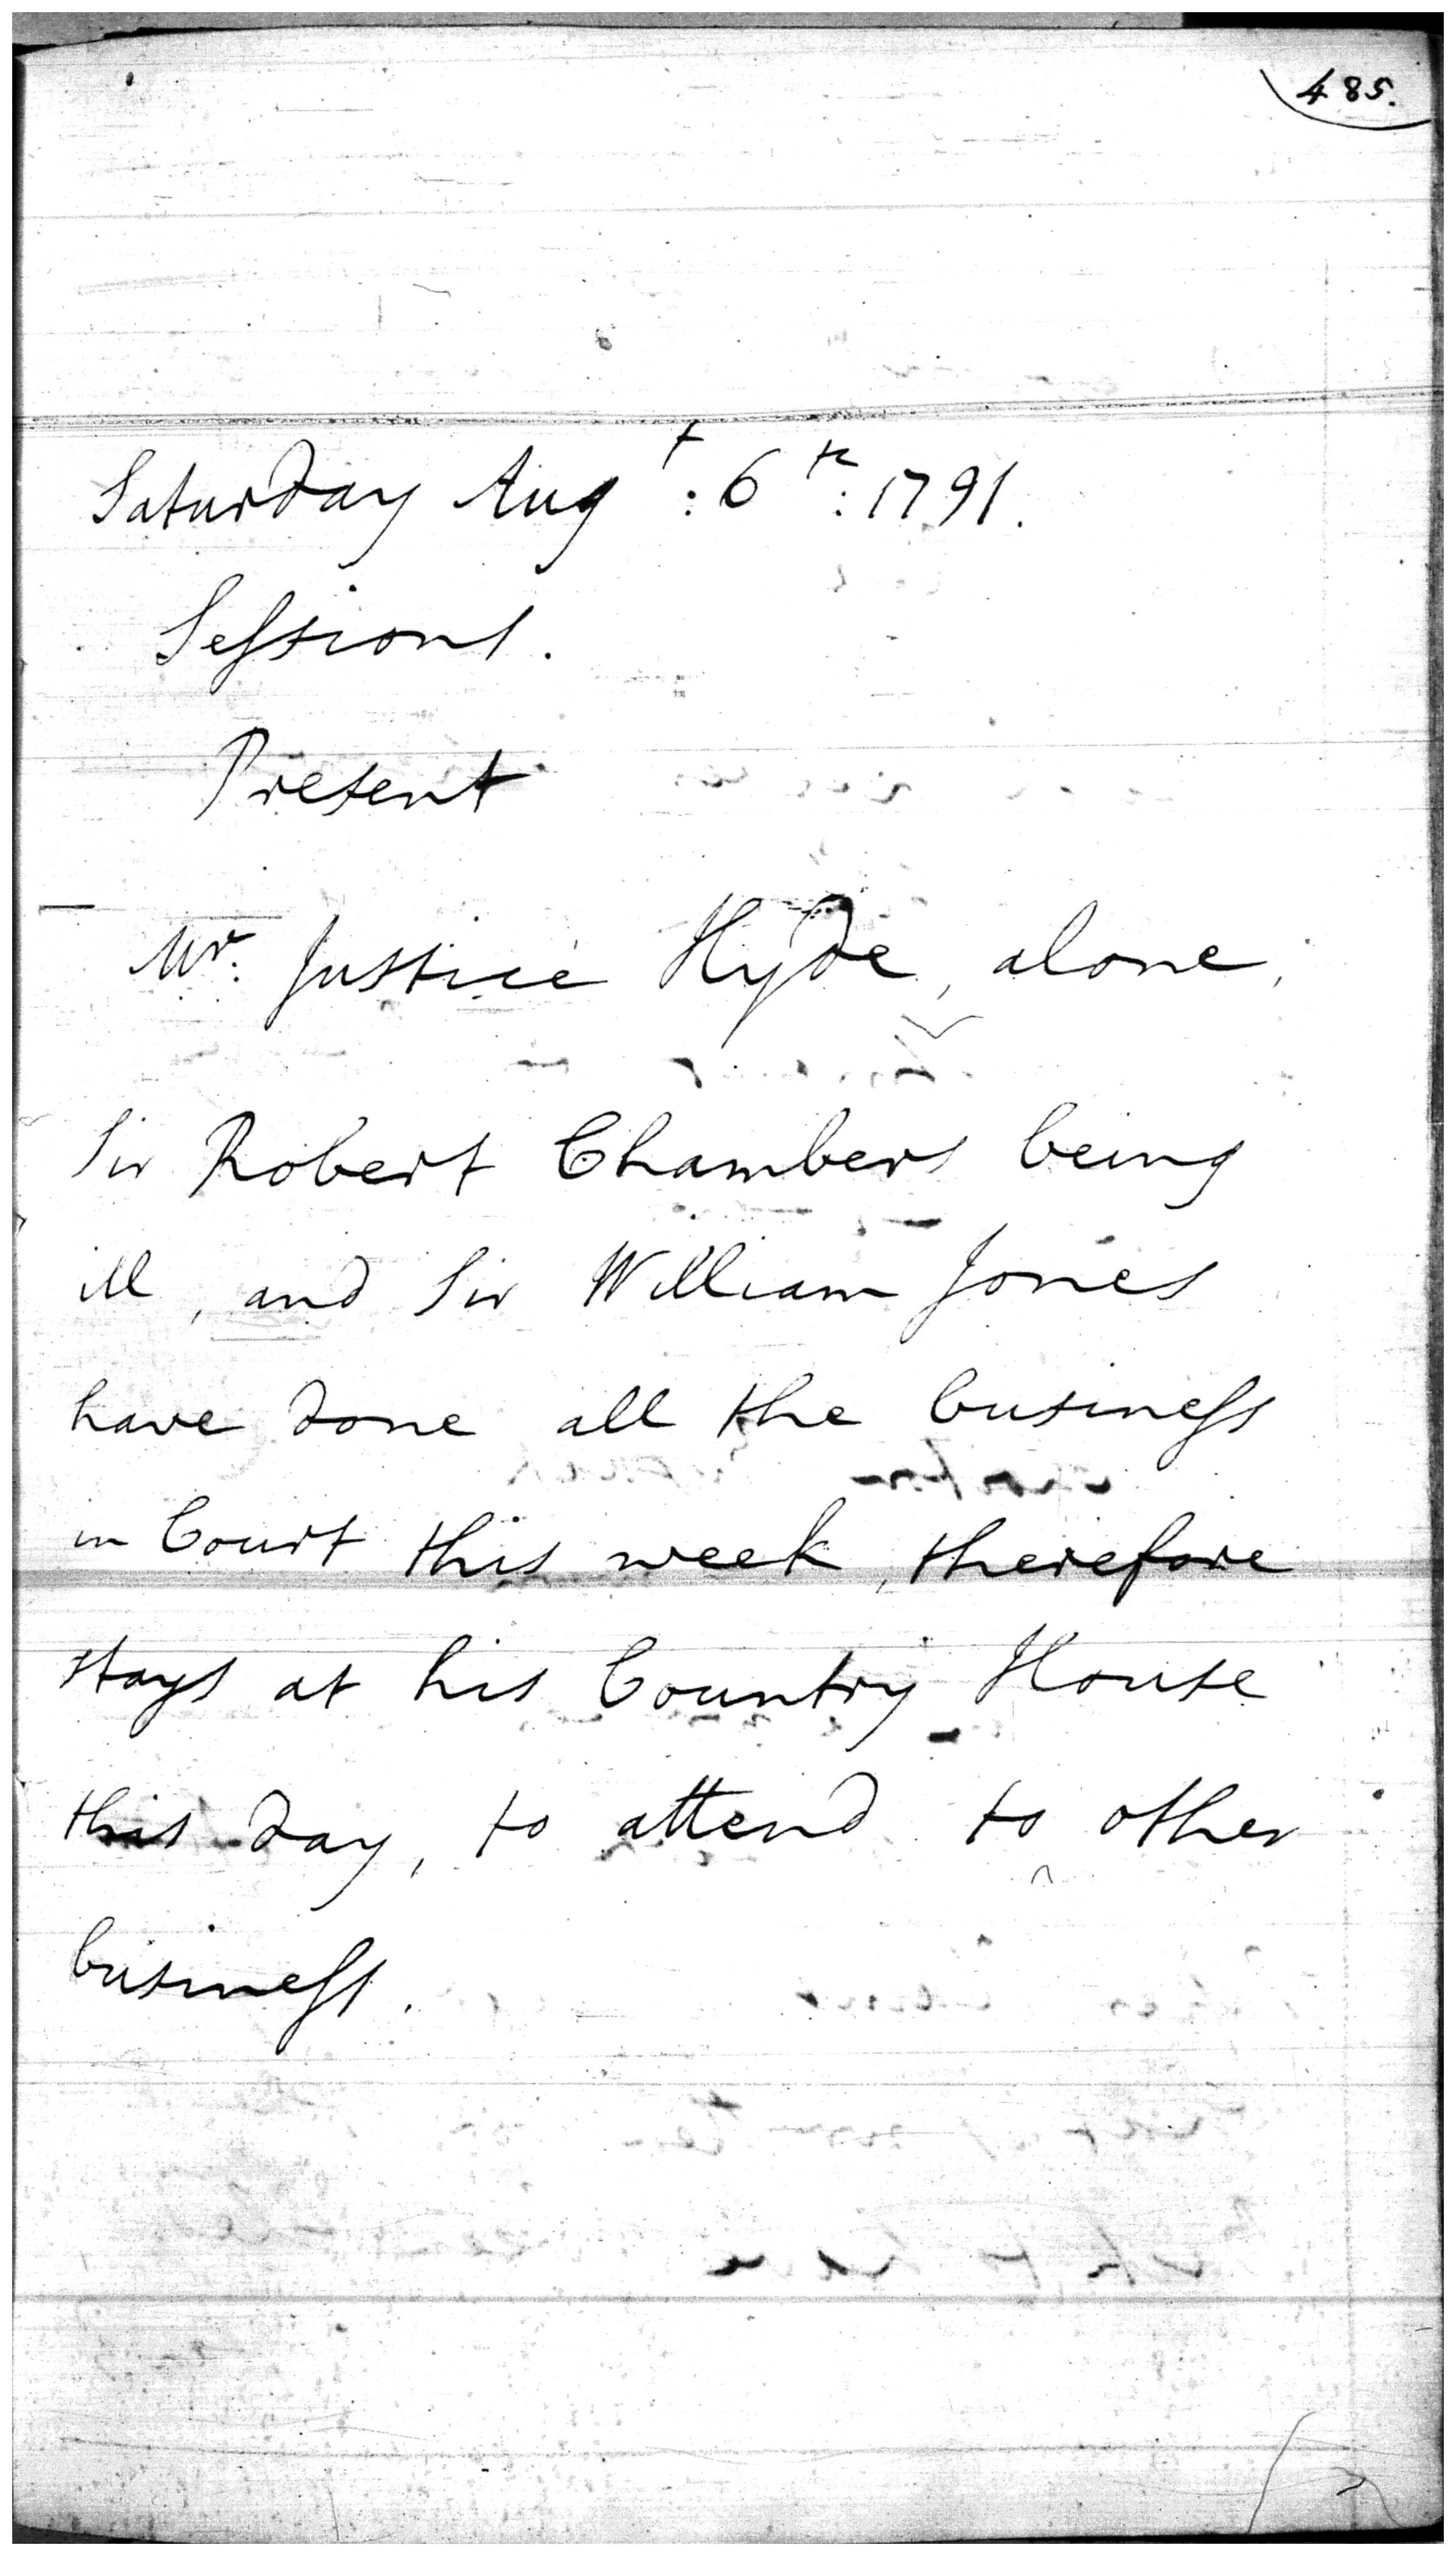 485.
Saturday Augt: 6th: 1791.
Sessions.
Present
Mr. Justice Hyde, alone,
Sir Robert Chambers being
ill, and Sir William Jones
have done all the business
in Court this week, therefore
stays at his Country House
this day, to attend to other
business.